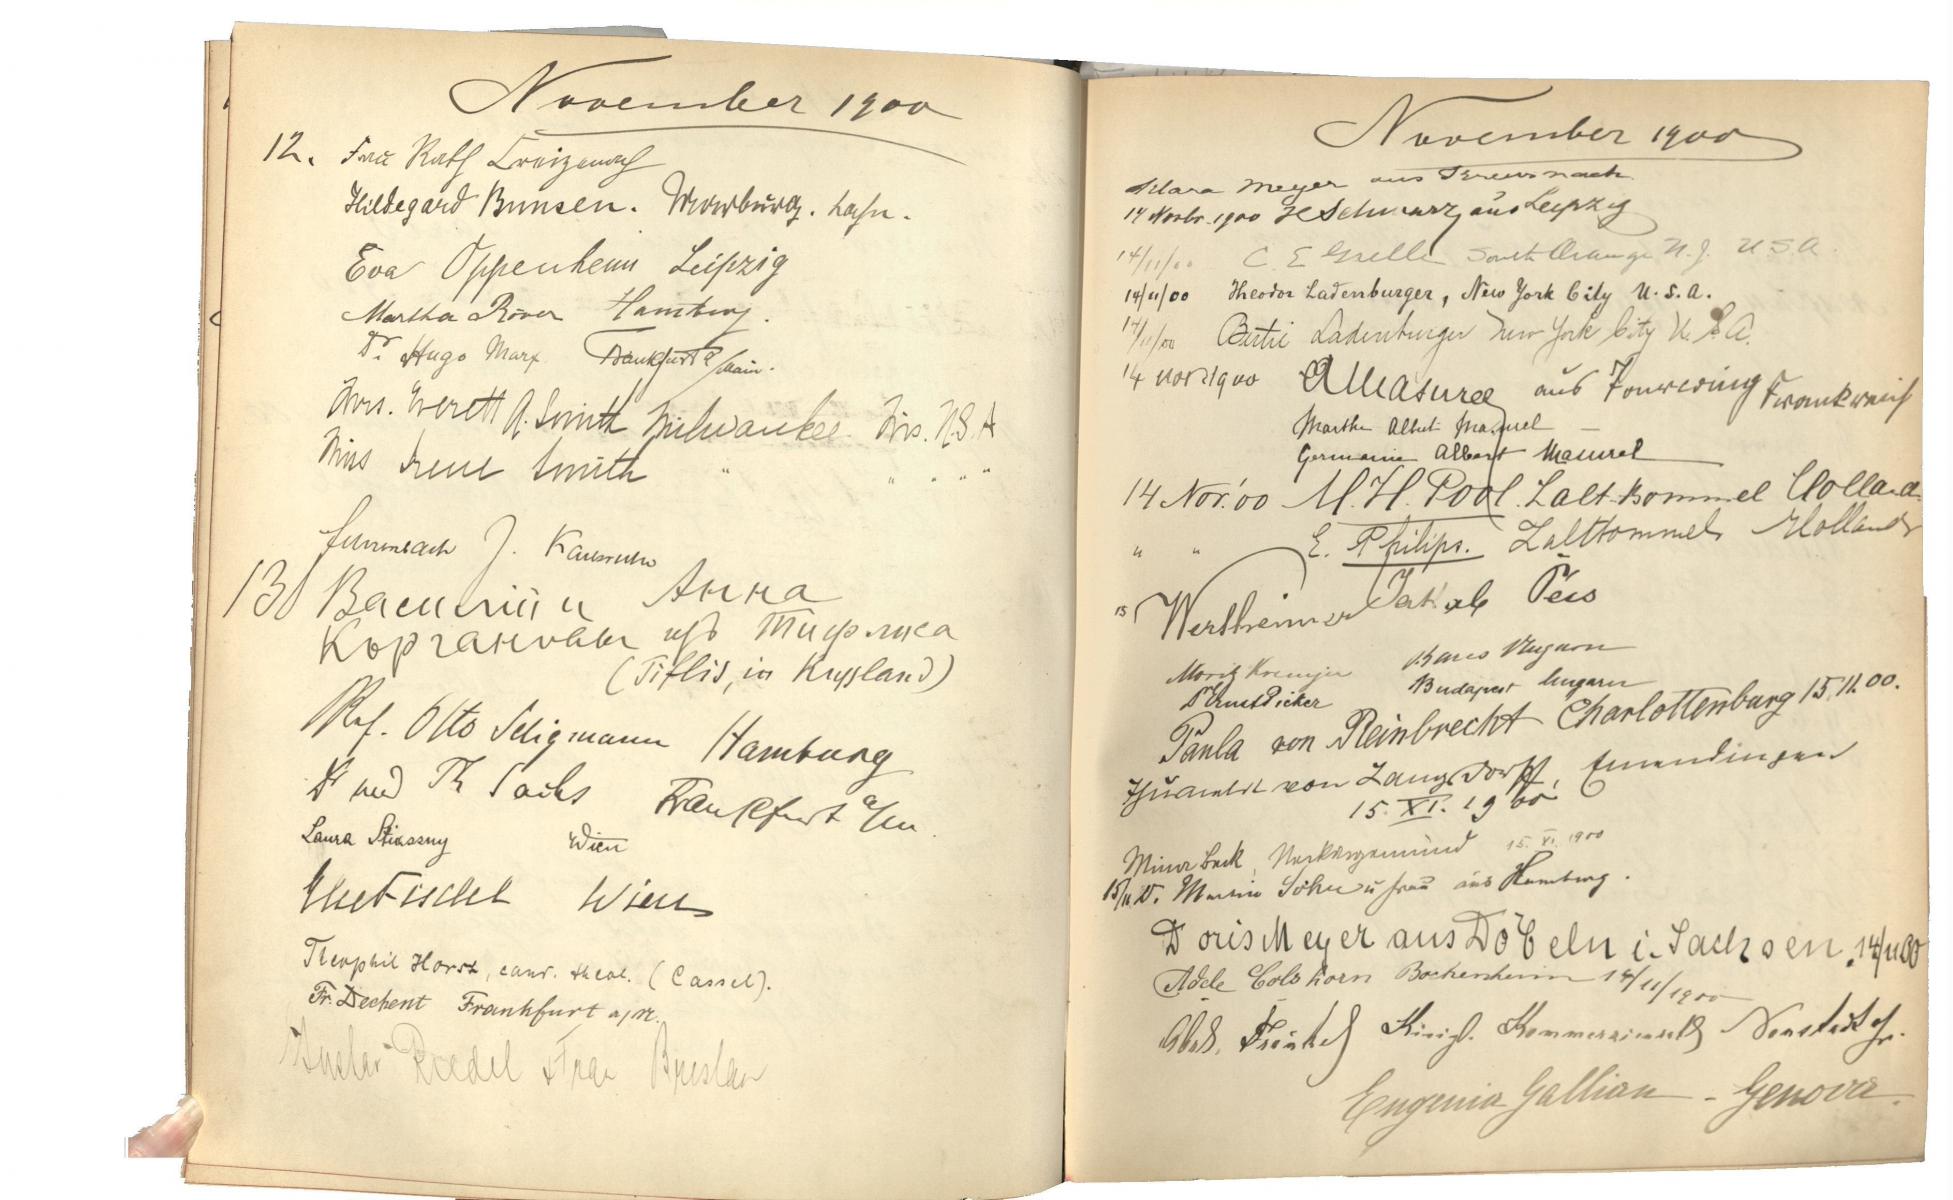 November 1900
12. Frau Rath Creizenach
Hildegard Bunsen. Marburg. Lahn.
Eva Oppenheim Leipzig
Martha Röver Hamburg.
Dr. Hugo Marx Frankfurt a/Main.
Mrs. Everett A. Smith Milwaukee Wis. U.S.A
Miss Irene Smith " " " " "
J. Karlsruhe
13 Анна
изъ Тифлиса
(Tiflis, in Russland)
Ref. Otto Seligmann Hamburg
Dr med Th Sachs Frankfurt a/M.
Laura Stiassny Wien
Wien
Theophil Horst, cand. theol. (Cassel).
Fr. Dechent Frankfurt a/M.
Gustav Riedel Frau Breslau
November 1900
Klara Meyer aus Kreuznach
14 Novbr. 1900 H Schwarz aus Leipzig
14/11/00 C. E South Orange N. J. U S A.
14/11/00 Theodor Ladenburger, New York City U. S. A.
14/11/00 Ladenburger New York City U. S. A.
14 nov 1900 aus Frankreich
Marthe Albert Maurel —
Germaine Albert Maurel
14 Nov. '00 M. H. Pool. Zalt-Bommel Holland
" " E. Philips. Zaltbommel Holland
15 Wertheimer Jakab Pécs
Moriz Ungarn
Dr Ernst Picker Budapest Ungarn
Paula von Reinbrecht Charlottenburg 15.11.00.
von Langsdorff, Emmendingen
15. XI. 1900
Neckargemünd 15. XI. 1900
15/11 Dr. Martin u frau aus Hamburg.
Doris Meyer aus Döbeln i. Sachsen. 14/11 00
Adele Colshorn Bockenheim 14/11/1900
Fränkel Königl. Kommerzienrath Neustadt
Eugenia Gallian - Genova.